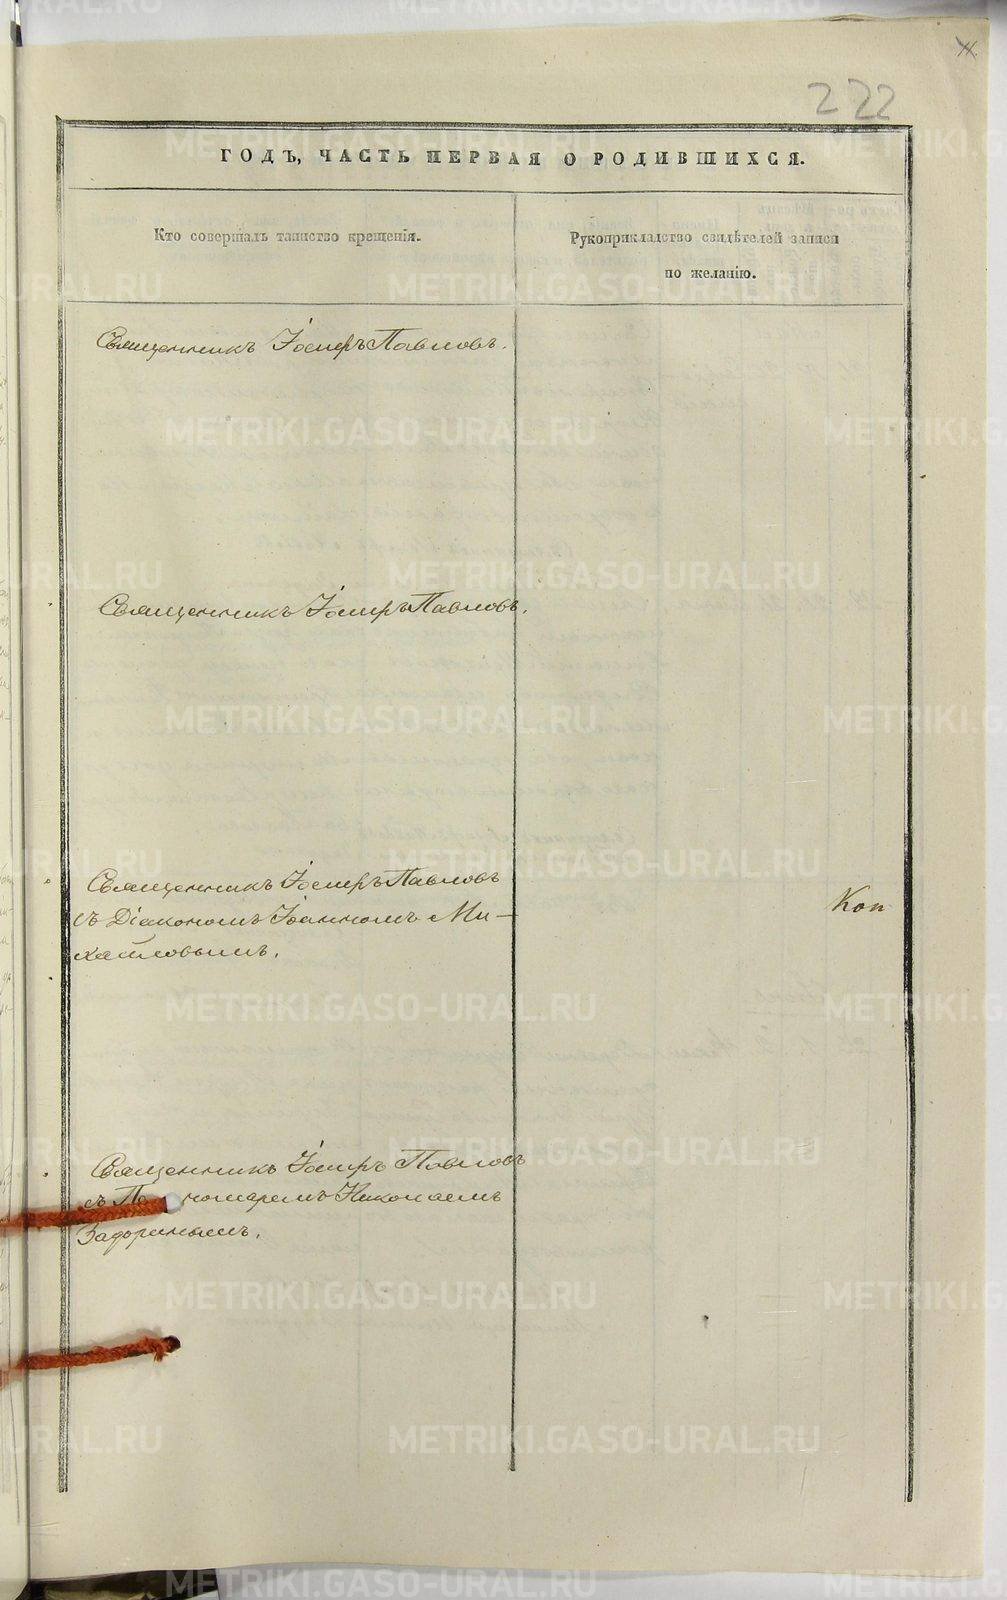 222
ГОДЪ, ЧАСТЬ ПЕРВАЯ О РОДИВШИХСЯ.
Кто совершалъ таинство крещенія.
Рукоприкладство свидѣтелей записи
по желанію.
Священникъ Іосифъ Павловъ.
Священникъ Іосифъ Павловъ.
Священникъ Іосифъ Павловъ
съ Діакономъ Іоанномъ Ми-
хайловымъ.
Коп
Священникъ Іосифъ Павловъ
съ Пономаремъ Николаемъ
Задоринымъ.
METRIKI.GASO-URAL.RU